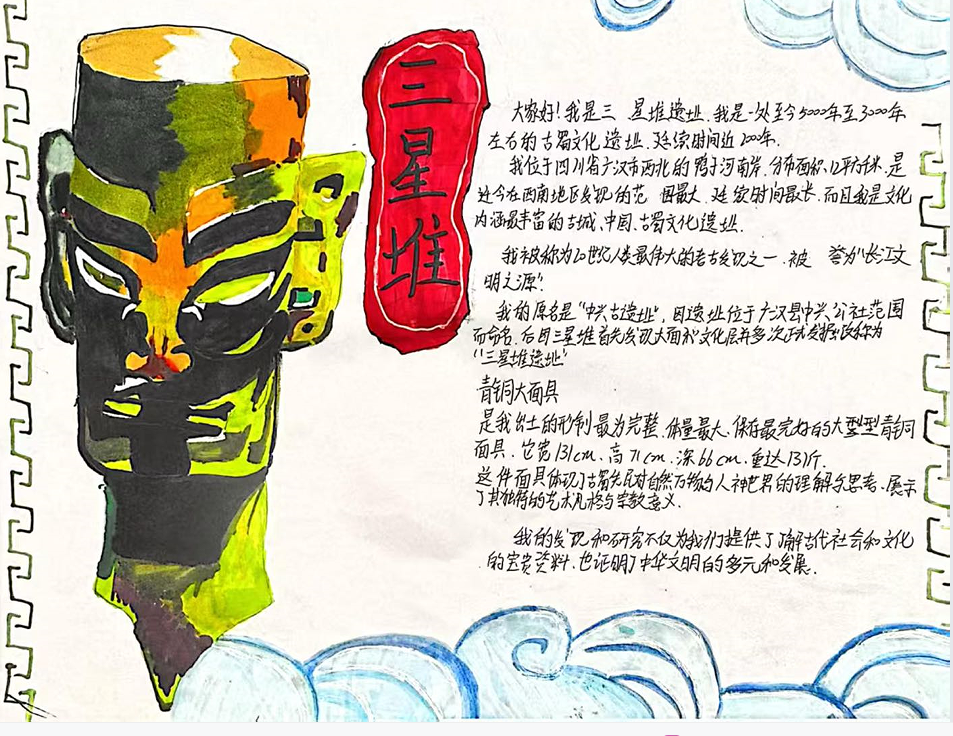 三星堆
大家好!我是三 星堆遗址.我是一处至今5000年至3000年
左右的古蜀文化遗址.延续时间近2000年.
我位于四川省广汉市西北的鸭子河南岸.分布面积12平方千米.是
迄今在西南地区发现的范 围最大.延续时间最长.而且我是文化
内涵最丰富的古城.中国.古蜀文化遗址.
我被称为20世纪人类最伟大的考古发现之一.被 誉为“长江文
明之源”
我的原名是“中兴古遗址”,因遗址位于广汉县中兴公社范围
而命名.后因三星堆首先发现大面积文化层并多次正式发掘改称为
“三星堆遗址”
青铜大面具
是我出土的形制最为完整.体量最大.保存最完好的大型型青铜
面具.它宽131cm.高71cm.深66cm.重达131斤.
这件面具体现了古蜀先民对自然万物的人神世界的理解与思考.展示
了其独特的艺术风格与宗教意义.
我的发现和研究不仅为我们提供了了解古代社会和文化
的宝贵资料.也证明了中华文明的多元和发展.